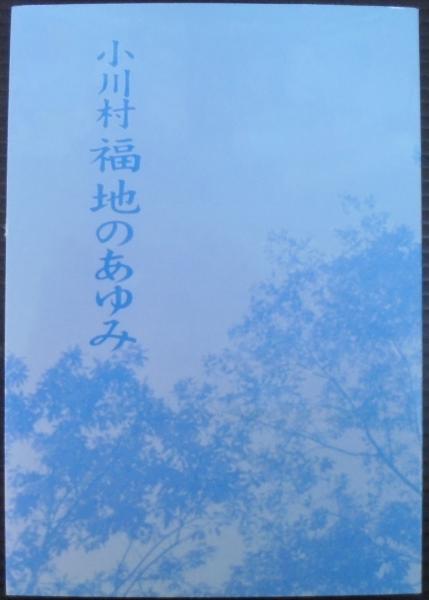 小川村福地のあゆみ